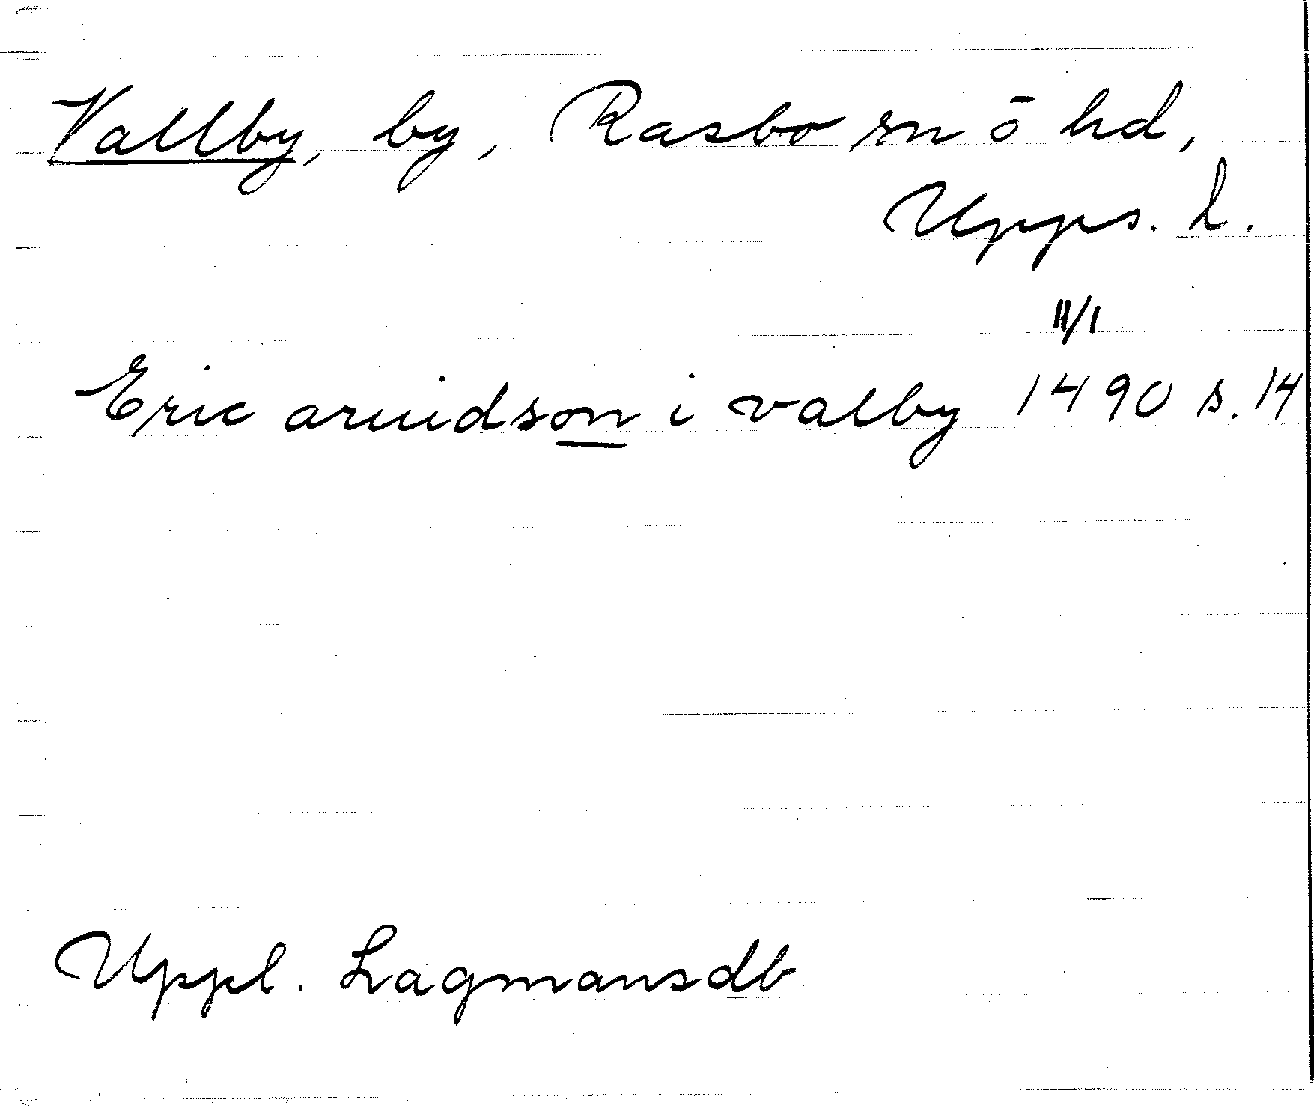 Vallby, by, Rasbo sn ō hd,
Upps. l.
11/1
Eric aruidson i valby 1490 s. 14
Uppl. Lagmansdb